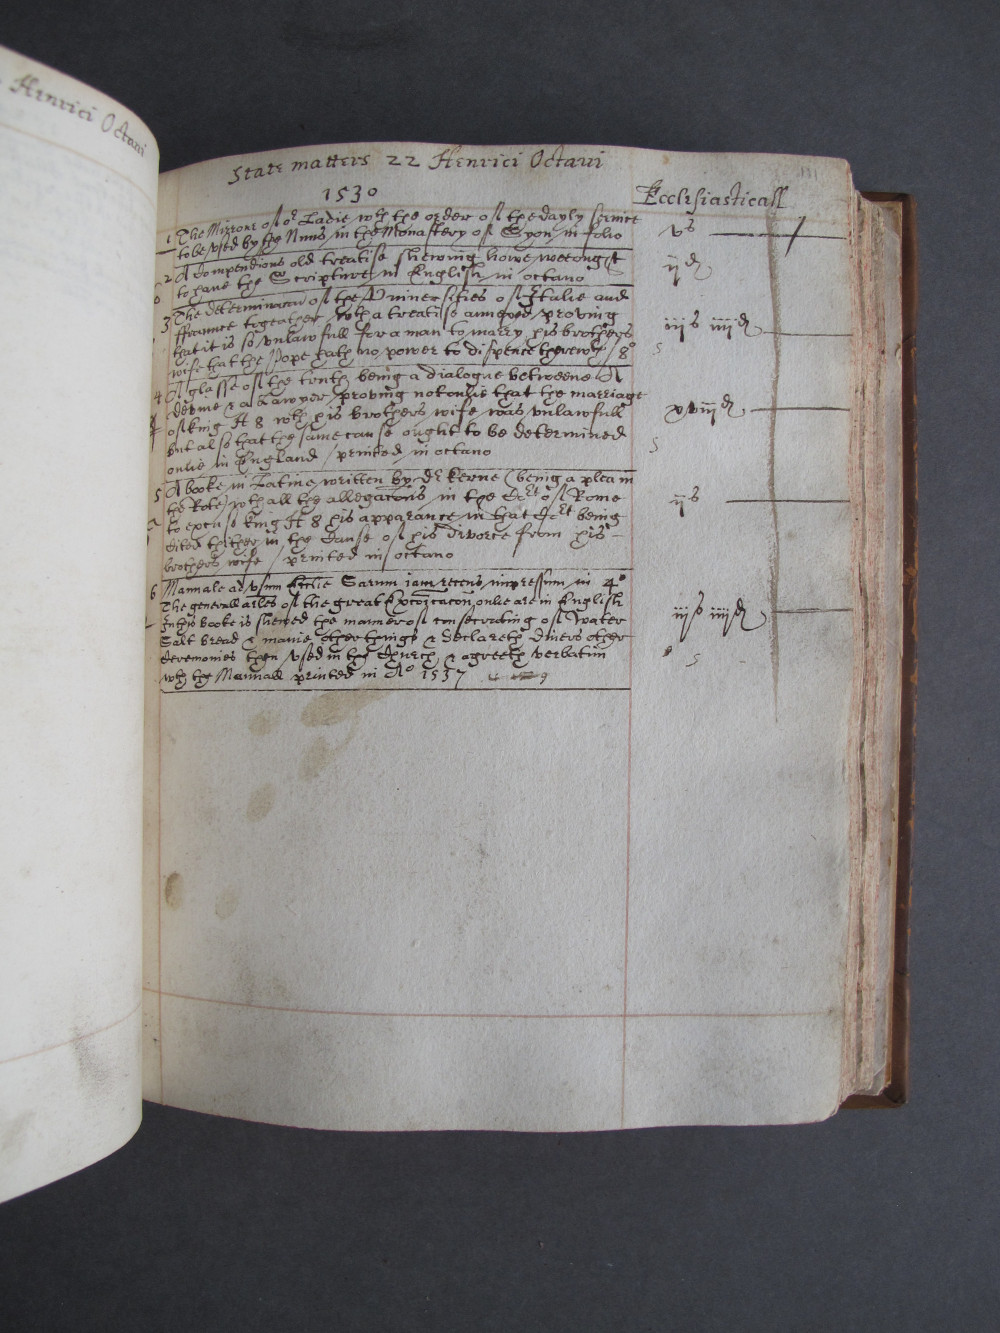 Henrici Octaui
State matters 22 Henrici Octaui
1530
Ecclesiasticall
111
1 The Mirrour of or Ladie wth the order of the dayly seruice
to be vsed by the Nuns in the Monastery of Syon in folio
vs
2 A compendious old treatise shewing howe wee ought
to haue the Scripture in English in octauo
ijd
3 The determinacon of the Vniuersities of Italie and
ffraunce together wth a treatise annexed proving
that it is so vnlawfull for a man to marry his brothers
wife that the Pope hath no power to dispence therewth / 8o
iijs iiijd
5
4 A glasse of the truth being a dialogue betweene A
Devine & a Lawyer proving not onlie that the marriage
of king H 8 wth his brothers wife was vnlawfull
but also that the same cause ought to be determined
onlie in England / printed in octauo
xviijd
5
5 A booke in Latine written by Dr Kerne (being a plea in
the Rote) wth all the allegacons in the Cort of Rome
to excuse king H 8 his apparance in that Cort being
cited thither in the Cause of his divorce from his
brothers wife / printed in octauo
ijs
6 Manuale ad vsum Ecclie Sarum iam recens impressum in 4o
The generall articles of the great Excoicacon onlie are in English
In this booke is shewed the manner of consecrating of Water
Salt bread & manie other things & declareth divers other
Ceremonies then vsed in the Church & agreeth verbatim
wth the Manuall printed in Ao 1537
ijs iiijd
5